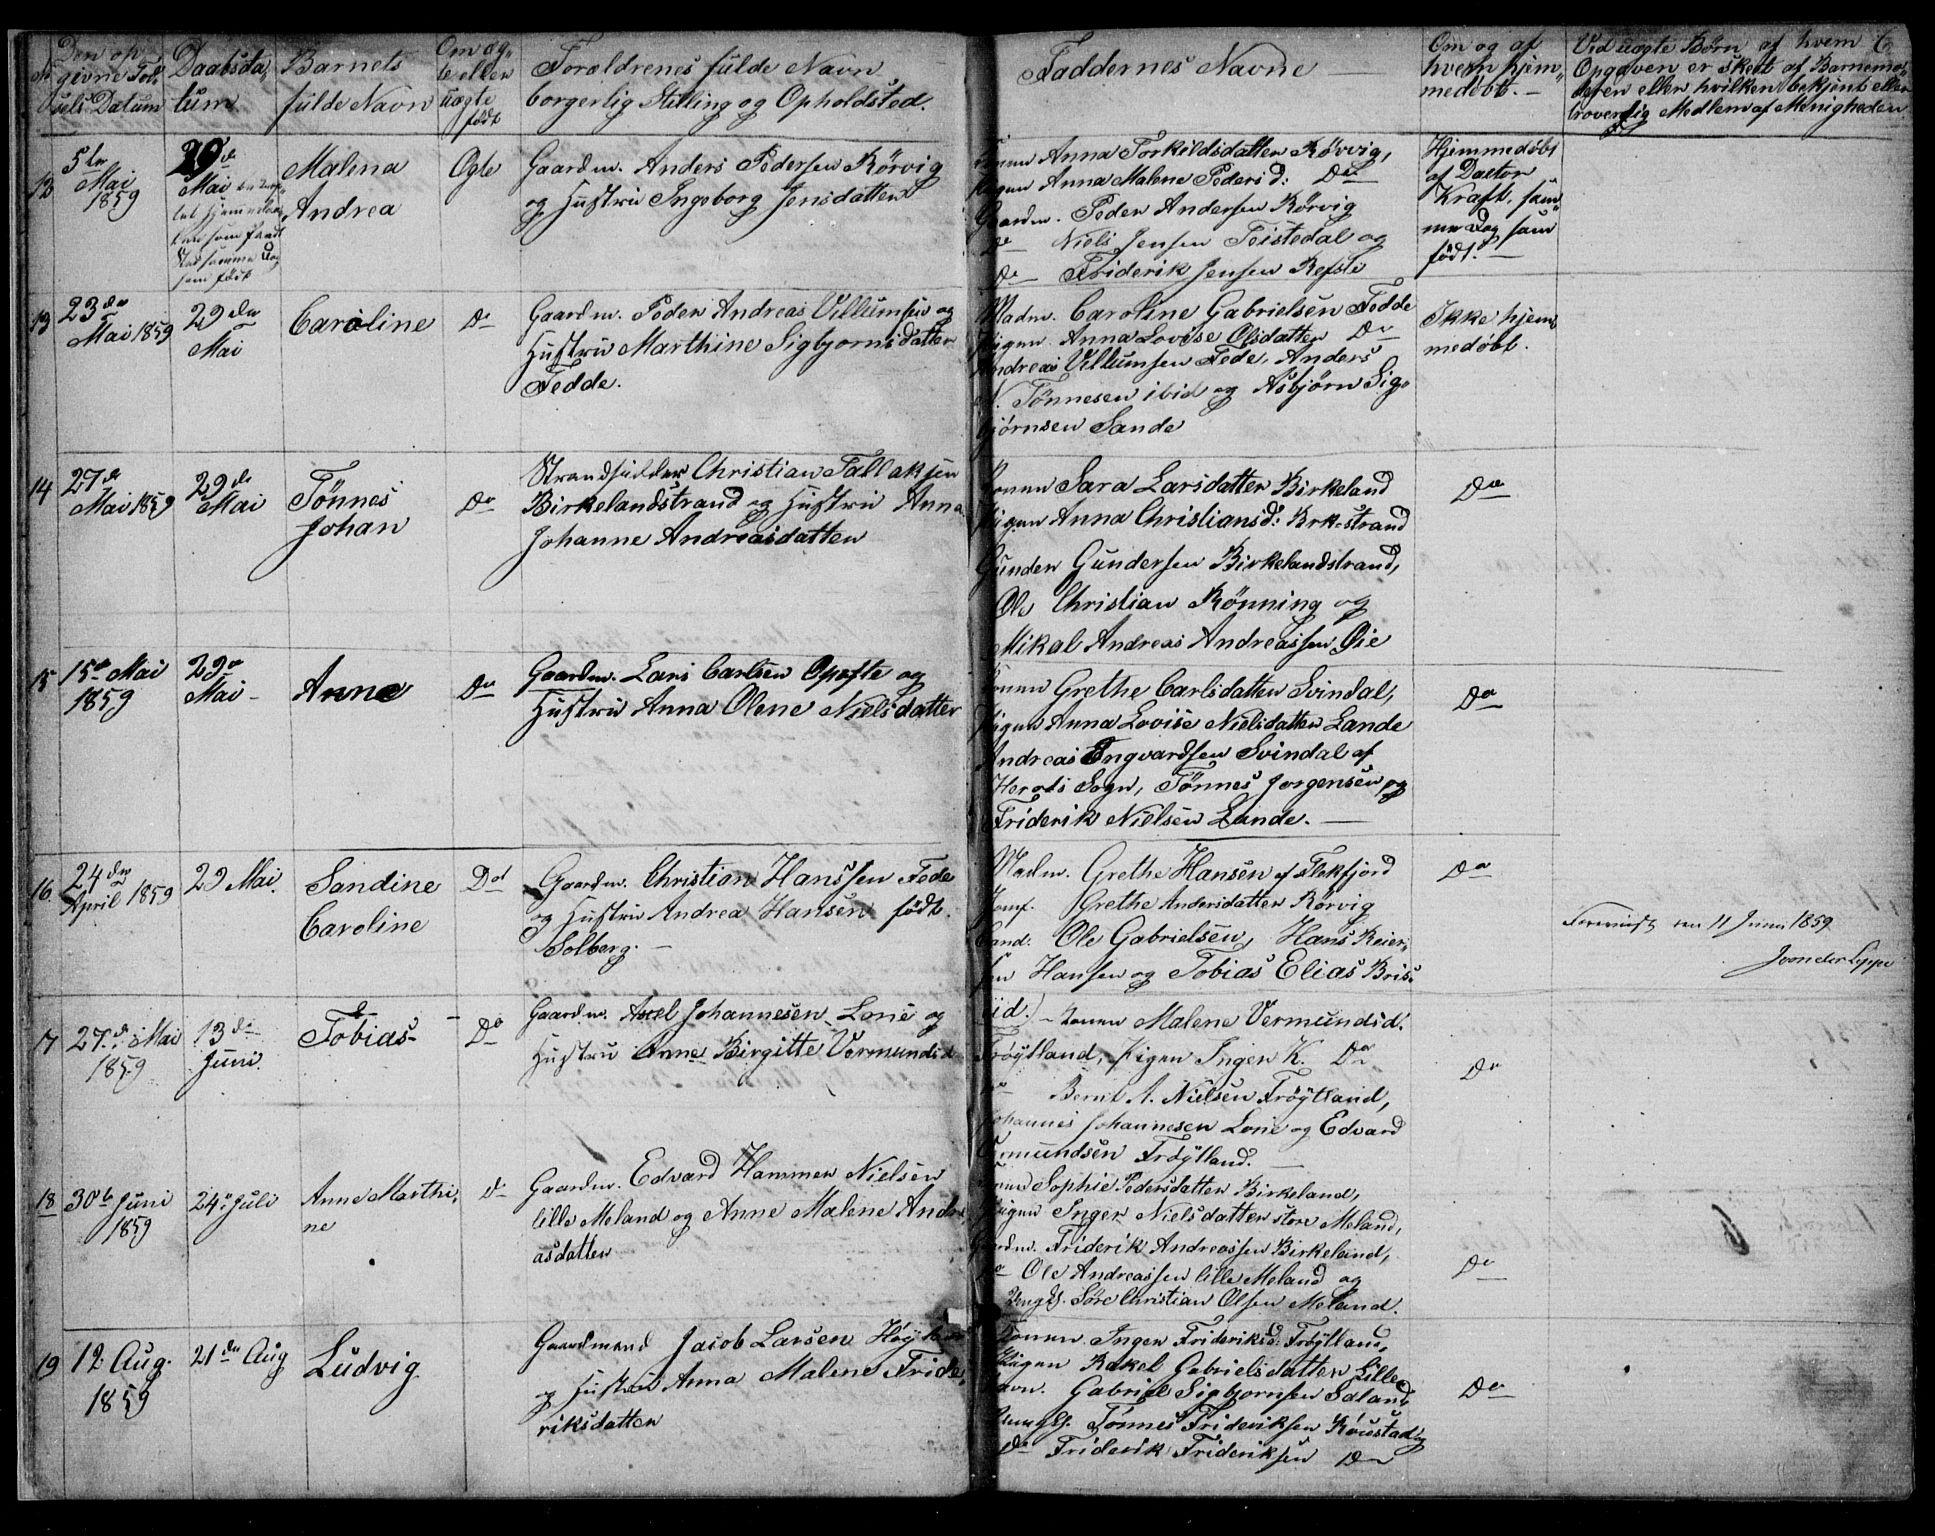 No
Den op-
givne Fød-
sels Datum
Daabsda-
tum
Barnets
fulde Navn
Om æg-
te eller
uægte
født
Forældrenes fulde Navn
borgerlig Stilling og Opholdsted.
Faddernes Navne
Om og af
hvem hjem-
medøbt.
Ved uægte Børn af hvem
Opgaven er skeet af Barnemo-
deren eller hvilken bekjent eller
troverdig Medlem af Menigheden
6
12
5te
Mai
1859
29de
Mai
som fandt
Sted samme Dag
som født
Malena
Andrea
Ægte
Gaardm. Anders Pedersen Rørvig
og Hustru Ingeborg Jensdatter
Konen Anna Torkildsdatter Rørvig,
Pigen Anna Malene Pedersd: Do
Gaardm. Peder Andersen Rørvig
Do Niels Jensen Teistedal og
Do Friderik Jensen Refste
Hjemmedøbt
af Doctor
Kraft, sam-
me Dag som
født.
13
23de
Mai 1859
29de
Mai
Caroline
Do
Gaardm. Peder Andreas Villumsen og
Hustru Marthine Sigbjørnsdatter
Fedde.
Madm. Caroline Gabrielsen Fedde
Pigen Anna Lovise Olsdatter Do
Andreas Villumsen Fede, Anders
N. Tønnesen ibid og Asbjørn Sig-
bjørnsen Sande
Ikke hjem-
medøbt.
14
27de
Mai 1859
29de
Mai
Tønnes
Johan
Do
Strandsidder Christian Tallaksen
Birkelandstrand og Hustru Anna
Johanne Andreasdatter
Konen Sara Larsdatter Birkeland
Pigen Anna Christiansd: Brk.strand
Gunder Gundersen Birkelandstrand,
Ole Christian Rønning og
Mikal Andreas Andreassen Øie
Do
15
15de Mai
1859
29de
Mai
Anne
Do
Gaardm. Lars Carlsen Opofte og
Hustru Anna Olene Nielsdatter
Konen Grethe Carlsdatter Svindal,
Pigen Anna Lovise Nielsdatter Lande
Andreas Engvardsen Svindal af
Herads Sogn, Tønnes Jørgensen og
Friderik Nielsen Lande.
Do
16
24de
April 1859
29 Mai.
Sandine
Caroline
Do
Gaardm. Christian Hanssen Fede
og Hustru Andrea Hansen født
Solberg.
Madm. Grethe Hansen af Flekfjord
Jomf. Grethe Andersdatter Rørvig
Cand. Ole Gabrielsen, Hans Reier-
sen Hansen og Tobias Elias Bris-
Do
11 Juni 1859
17
27de Mai
1859
13de
Juni.
Tobias
Do
Gaardm. Axel Johannesen Lone og
Hustru Anne Birgitte Vermundsd
Konen Malene Vermundsd.
Frøytland, Pigen Inger K. Do
Do Bernt A. Nielsen Frøytland,
Johannes Johannesen Lone og Edvard
Vermundsen Frøytland.
Do
18
30te Juni
1859
24de Juli
Anne Marthi-
ne
Do
Gaardm. Edvard Hammer Nielsen
lille Meland og Anne Malene Andre-
asdatter
Konen Sophie Pedersdatter Birkeland,
Pigen Inger Nielsdatter store Meland,
Gaardm. Friderik Andreassen Birkeland,
Do Ole Andreassen lille Meland og
Ungk. Søre Christian Olsen Meland.
Do
19
12 Aug.
1859
21de Aug
Ludvig
Gaardmand Jacob Larsen
og Hustru Anna Malene Fride-
riksdatter
Konen Inger Frideriksd: Frøytland,
Pigen Rakel Gabrielsdatter Lille
havn. Gabriel Sigbjørnsen Sdland,
Ungk. Tønnes Frideriksen Røiestad og
Do Friderik Frideriksen Do
Do